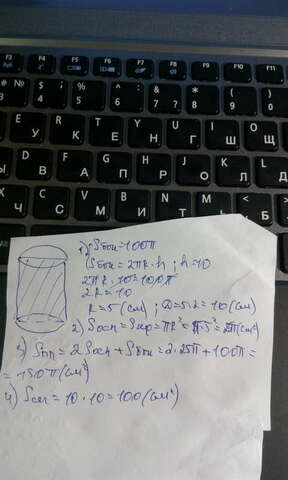 F3 F4 F5 F6 F7 F8 F9 F10 F11
# № 3 $ ; 4 % 5 ^ : 6 & ? 7 * 8 ( 9 ) 0
E У R К T Е Y Н U Г I Ш O Щ
D В F А G П H Р J О K Л L Д
X Ч C С V М B И N Т M Ь < Б
1) Sбок = 100π
Sбок = 2πR · h ; h = 10
2πR · 10 = 100π
2R = 10
R = 5 (см) ; D = 5 · 2 = 10 (см)
2) Sосн = Sкр = πR² = π · 5² = 25π (см²)
3) Sпп = 2Sосн + Sбок = 2 · 25π + 100π =
= 150π (см²)
4) Sсеч = 10 · 10 = 100 (см²)